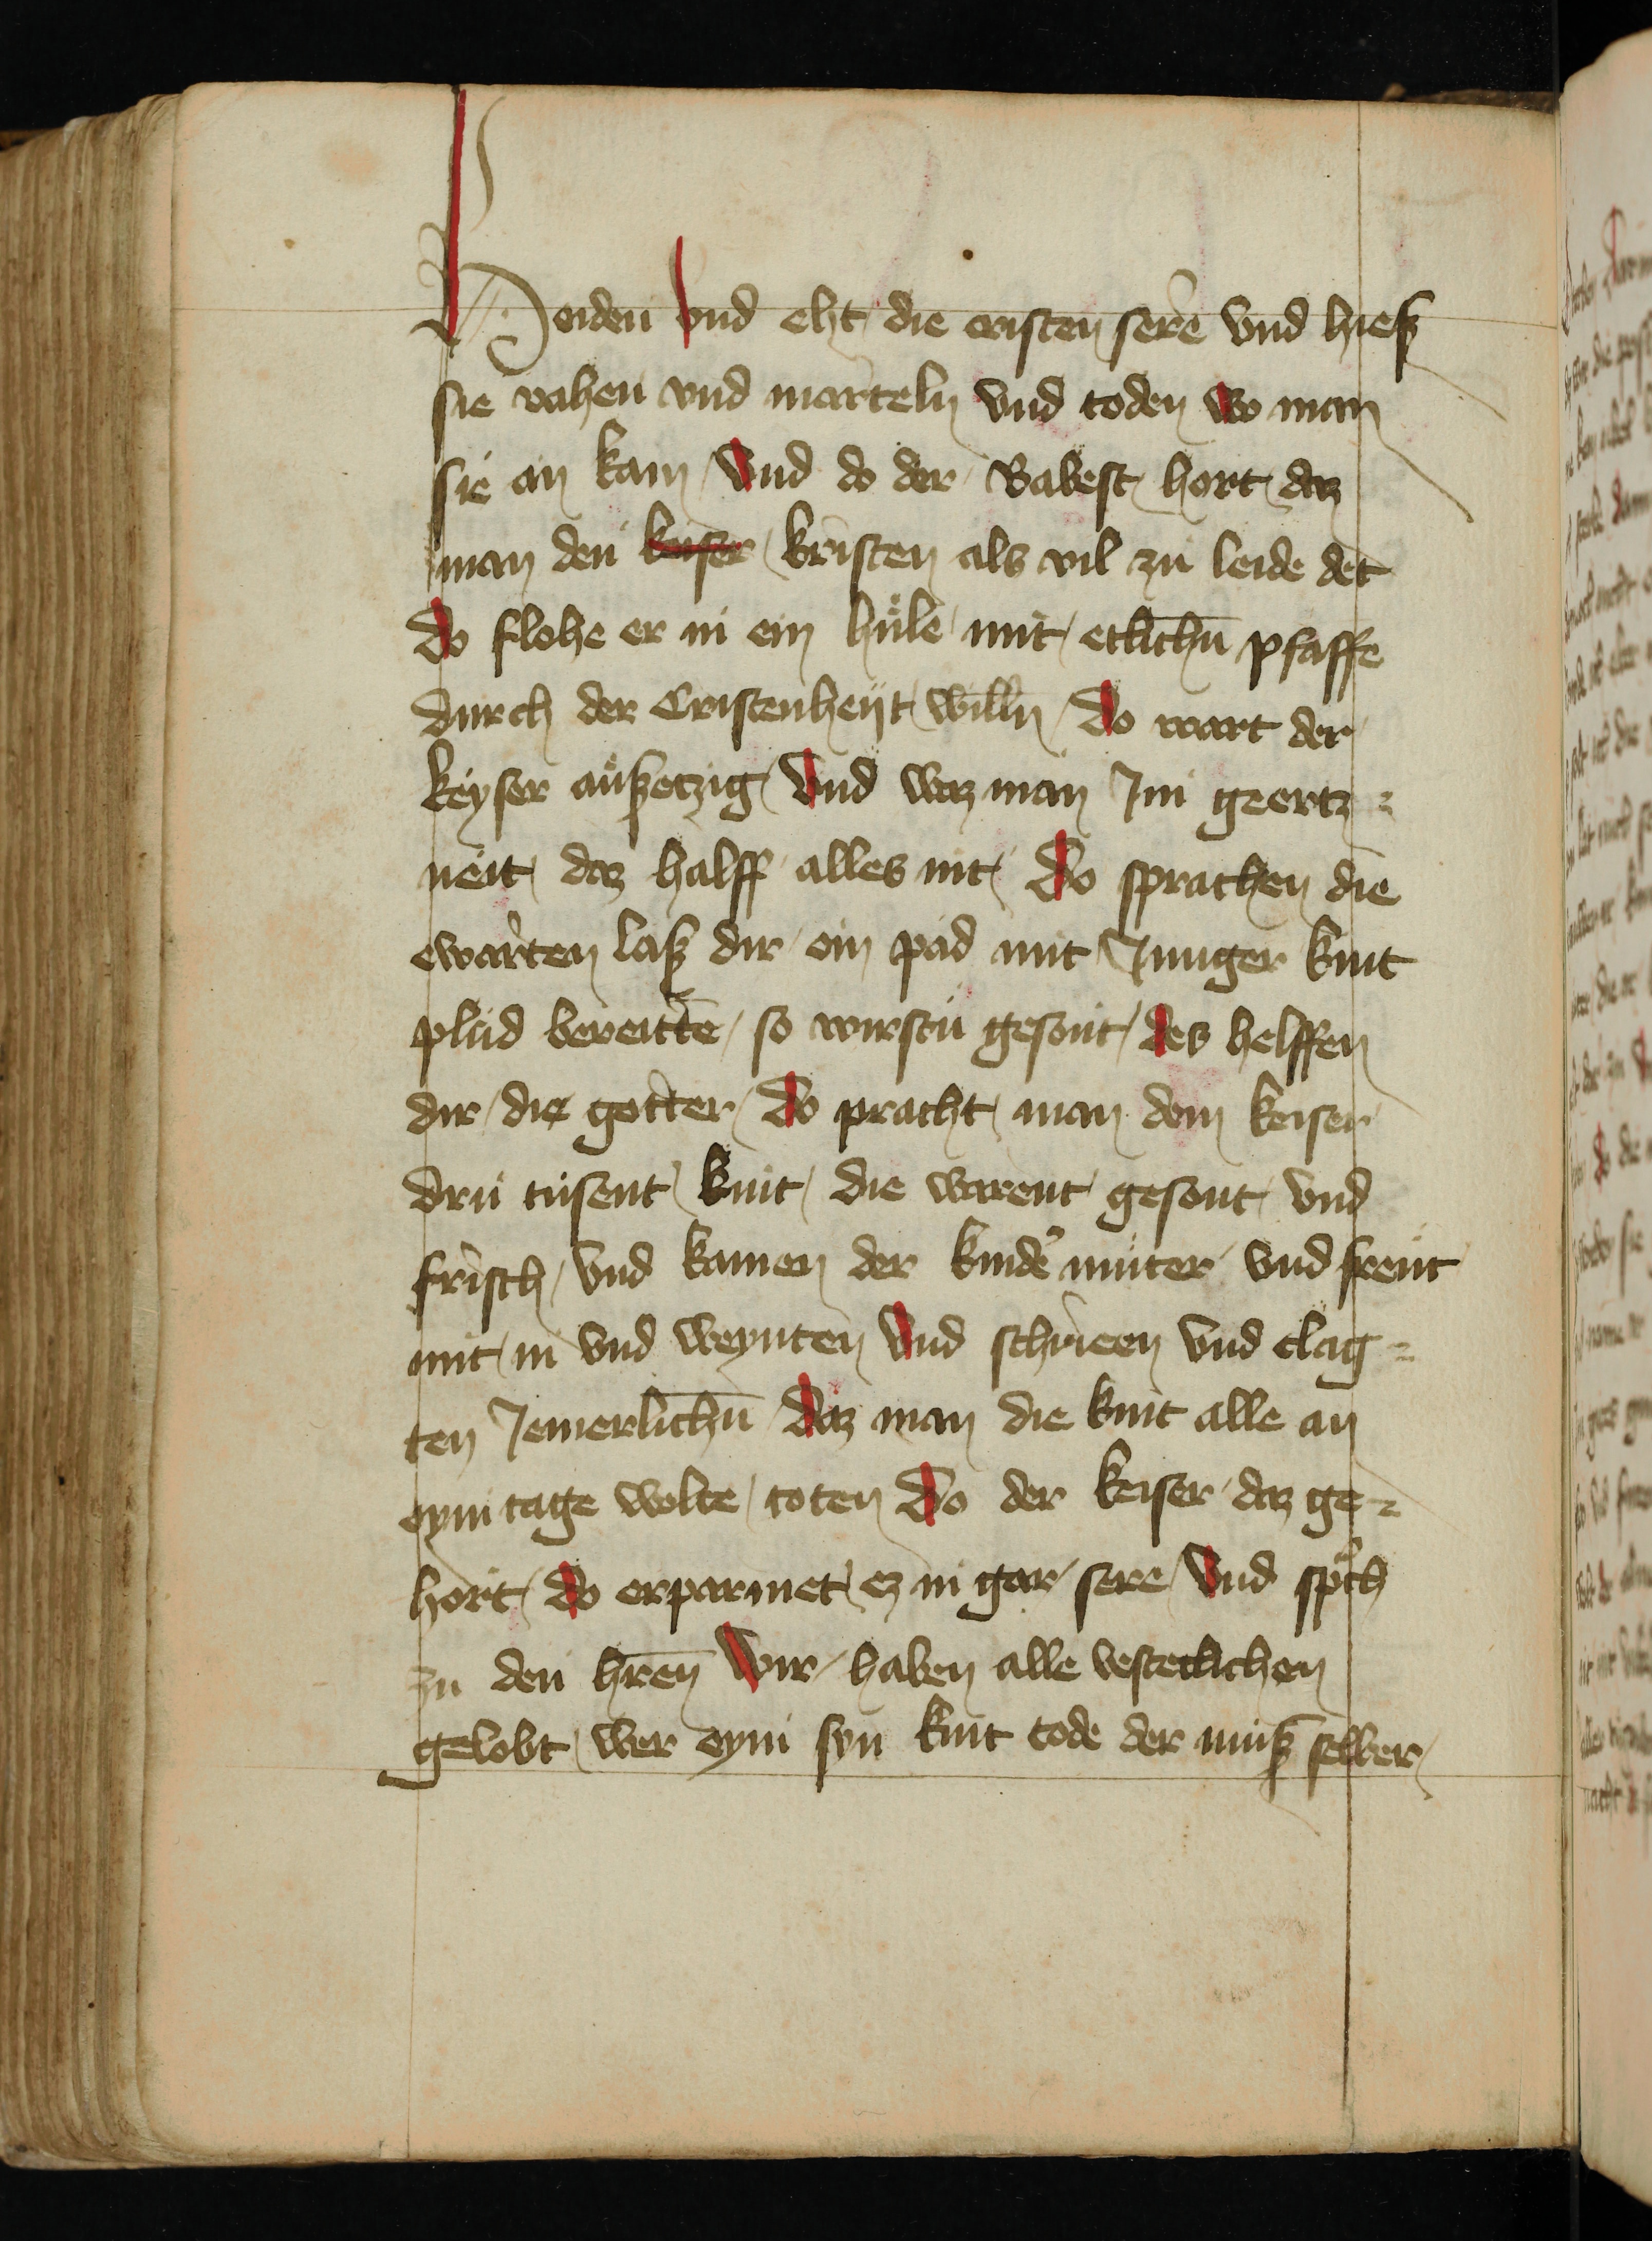 Heiden vnd eht die cristen sere vnd hieß
sie vahen vnd marteln vnd toden wo man
sie an kam Vnd do der Babest hort daz
man den keiser kristen als vil zu leide det
do flohe er in ein hüle mit etlichn̄ pfaffe
durch der Cristenheijt willn̄ do wart der
keyser außetzig Vnd waz man Im geertz=
neit daz halff alles nit Do sprachen die
ewarten laß dir ein pad mit Junger kint
plud bereitte so wirstu gesont des helffen
dir die gotter Do pracht man dem keiser
dru tusent kint die warent gesont vnd
frisch vnd kamen der kinde᾽ muter vnd freut
mit in vnd weynten Vnd schrieen vnd clag=
ten Jemerlichn̄ Daz man die kint alle an
eym tage wolte toten Do der keiser daz ge=
hort do erparmet ez in gar sere Vnd sprͣch
zu den hren̄ Wir haben alle vestetlichen
gelobt wer eym syn kint tode der muß selber